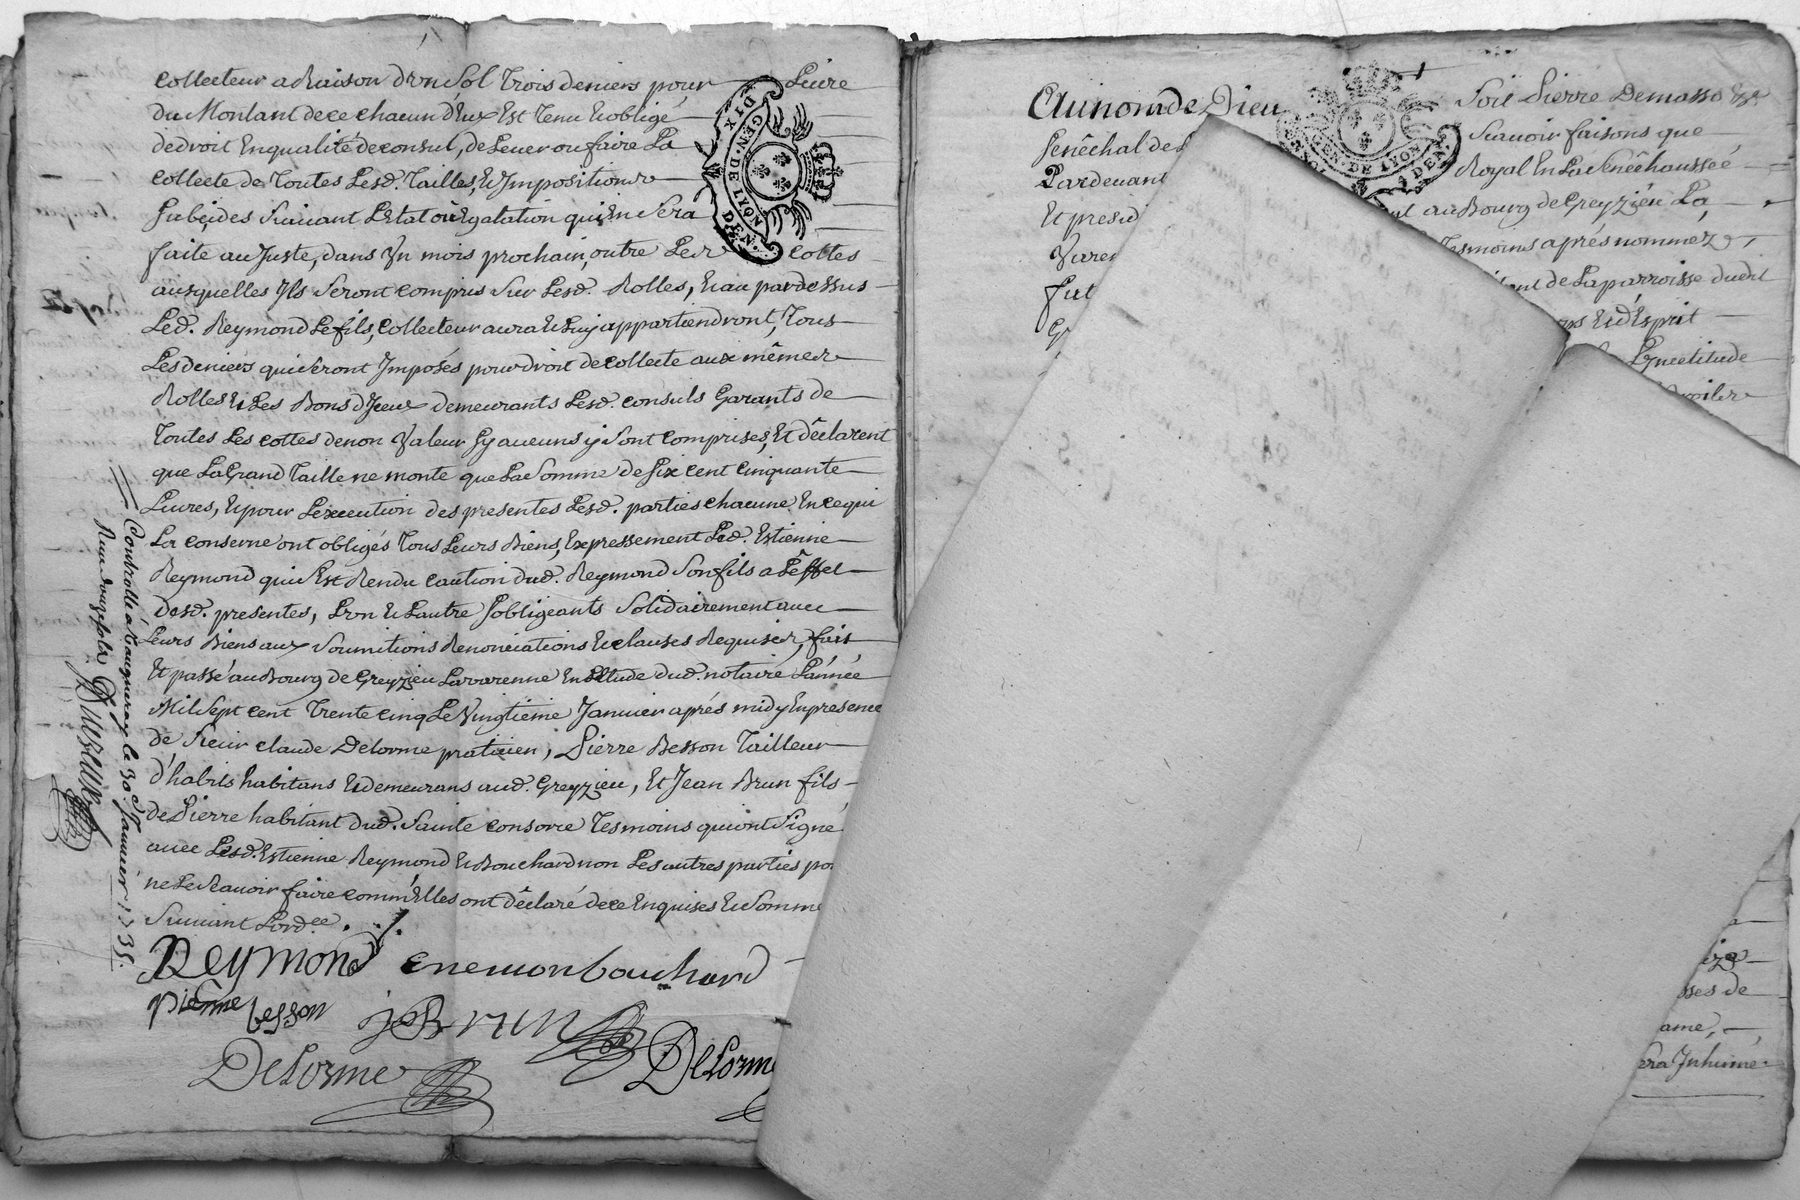 collecteur a Raison d'vn Sol Trois deniers pour Livre
du Montant de ce chacun d'Eux Est Tenu Et obligé
de droit En qualité de consul, de Lever ou faire La
collecte de Toutes Lesd. Tailles, Et Impositions
Subcides Suivant L'Etat ou Egalation qui En Sera
faite au Juste, dans Vn mois prochain, outre Les cottes
ausquelles Ils Seront compris Sur Lesd. Rolles, Et au par dessus
Led. Reymond Le fils, Collecteur aura Et Luy appartiendront, Tous
Les deniers qui Seront Imposés pour droit de collecte aux mêmes
Rolles Et Les Bons d'Iceux demeurants Lesd. consuls Garants de
Toutes Les cottes de non Valeur Sy aucuns y Sont comprises, Et déclarent
que La Grand Taille ne monte que La Somme de Six cent Cinquante
Livres, Et pour L'éxecution des presentes Lesd. parties chacune En ce qui
La conserne ont obligés Tous Leurs Biens, Expressement Led. Estienne
Reymond qui S'Est Rendu caution dud. Reymond Son fils a L'effet
desd. presentes, L'vn Et L'autre S'obligeants Solidairement avec
Leurs Biens aux Soumitions Renonciations Et clauses Requises, fait
Et passé au Bourg de Greyzieu Lavarenne En Etude dud. notaire L'année
Mil Sept cent Trente cinq Le Vingtième Janvier aprés midy En presence
de Sieur claude Delorme praticien, Pierre Besson Tailleur
d'habits habitans Et demeurans aud. Greyzieu, Et Jean Brun fils
de Pierre habitant dud. Sainte consorce Tesmoins qui ont Signé
avec Lesd. Estienne Reymond Et Bouchard non Les autres parties po
ne Le Scavoir faire comm'Elles ont déclaré de ce Enquises Et Somme
Suivant L'ord.ce
Reymond Enemon bouchard
pierre besson jBrun
Delorme Delorme
GEN. DE LYON
DIX DEN.
Controllé à Vaugneray le 30e Janvier 1735.
Reçu douze sols
Au nom de Dieu Soit Pierre Demasso
Scavoir faisons que
Senêchal de Royal En La Senêchaussée
Pardevant au Bourg de Greyzieu La
Et presid Tesmoins aprés nommez
de La parroisse dudit
Et d'Esprit
fut
GEN. DE LYON
DEN.
sses de
ame,
era Inhumé